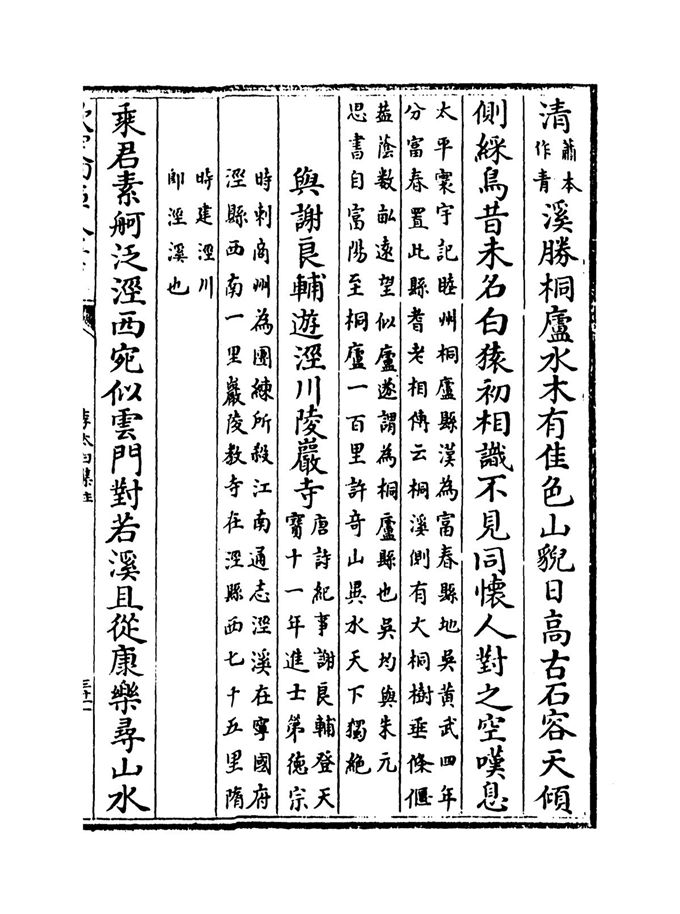 清蕭本作青溪勝桐廬水木有佳色山貌日高古石容天傾
側綵鳥昔未名白猿初相識不見同懷人對之空嘆息
太平寰宇記睦州桐廬縣漢為富春縣地吳黃武四年
分富春置此縣耆老相傳云桐溪側有大桐樹垂條偃
葢蔭數畝遠望似廬遂謂為桐廬縣也吳均與朱元
思書自富陽至桐廬一百里許奇山異水天下獨絶
與謝良輔遊涇川陵巖寺
唐詩紀事謝良輔登天
寳十一年進士第德宗
時刺商州為團練所殺江南通志涇溪在寧國府
涇縣西南一里巖陵教寺在涇縣西七十五里隋
時建涇川
即涇溪也
乘君素舸泛涇西宛似雲門對若溪且從康樂尋山水
李太白集注